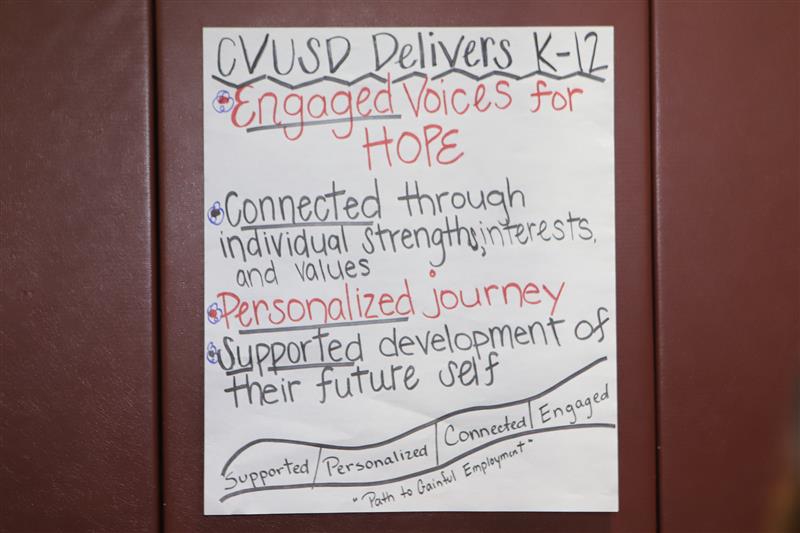 CVUSD Delivers K-12
Engaged Voices for
HOPE
Connected through
individual strengths, interests,
and values
Personalized journey
Supported development of
their future self
Supported / Personalized | Connected | Engaged
"Path to Gainful Employment"